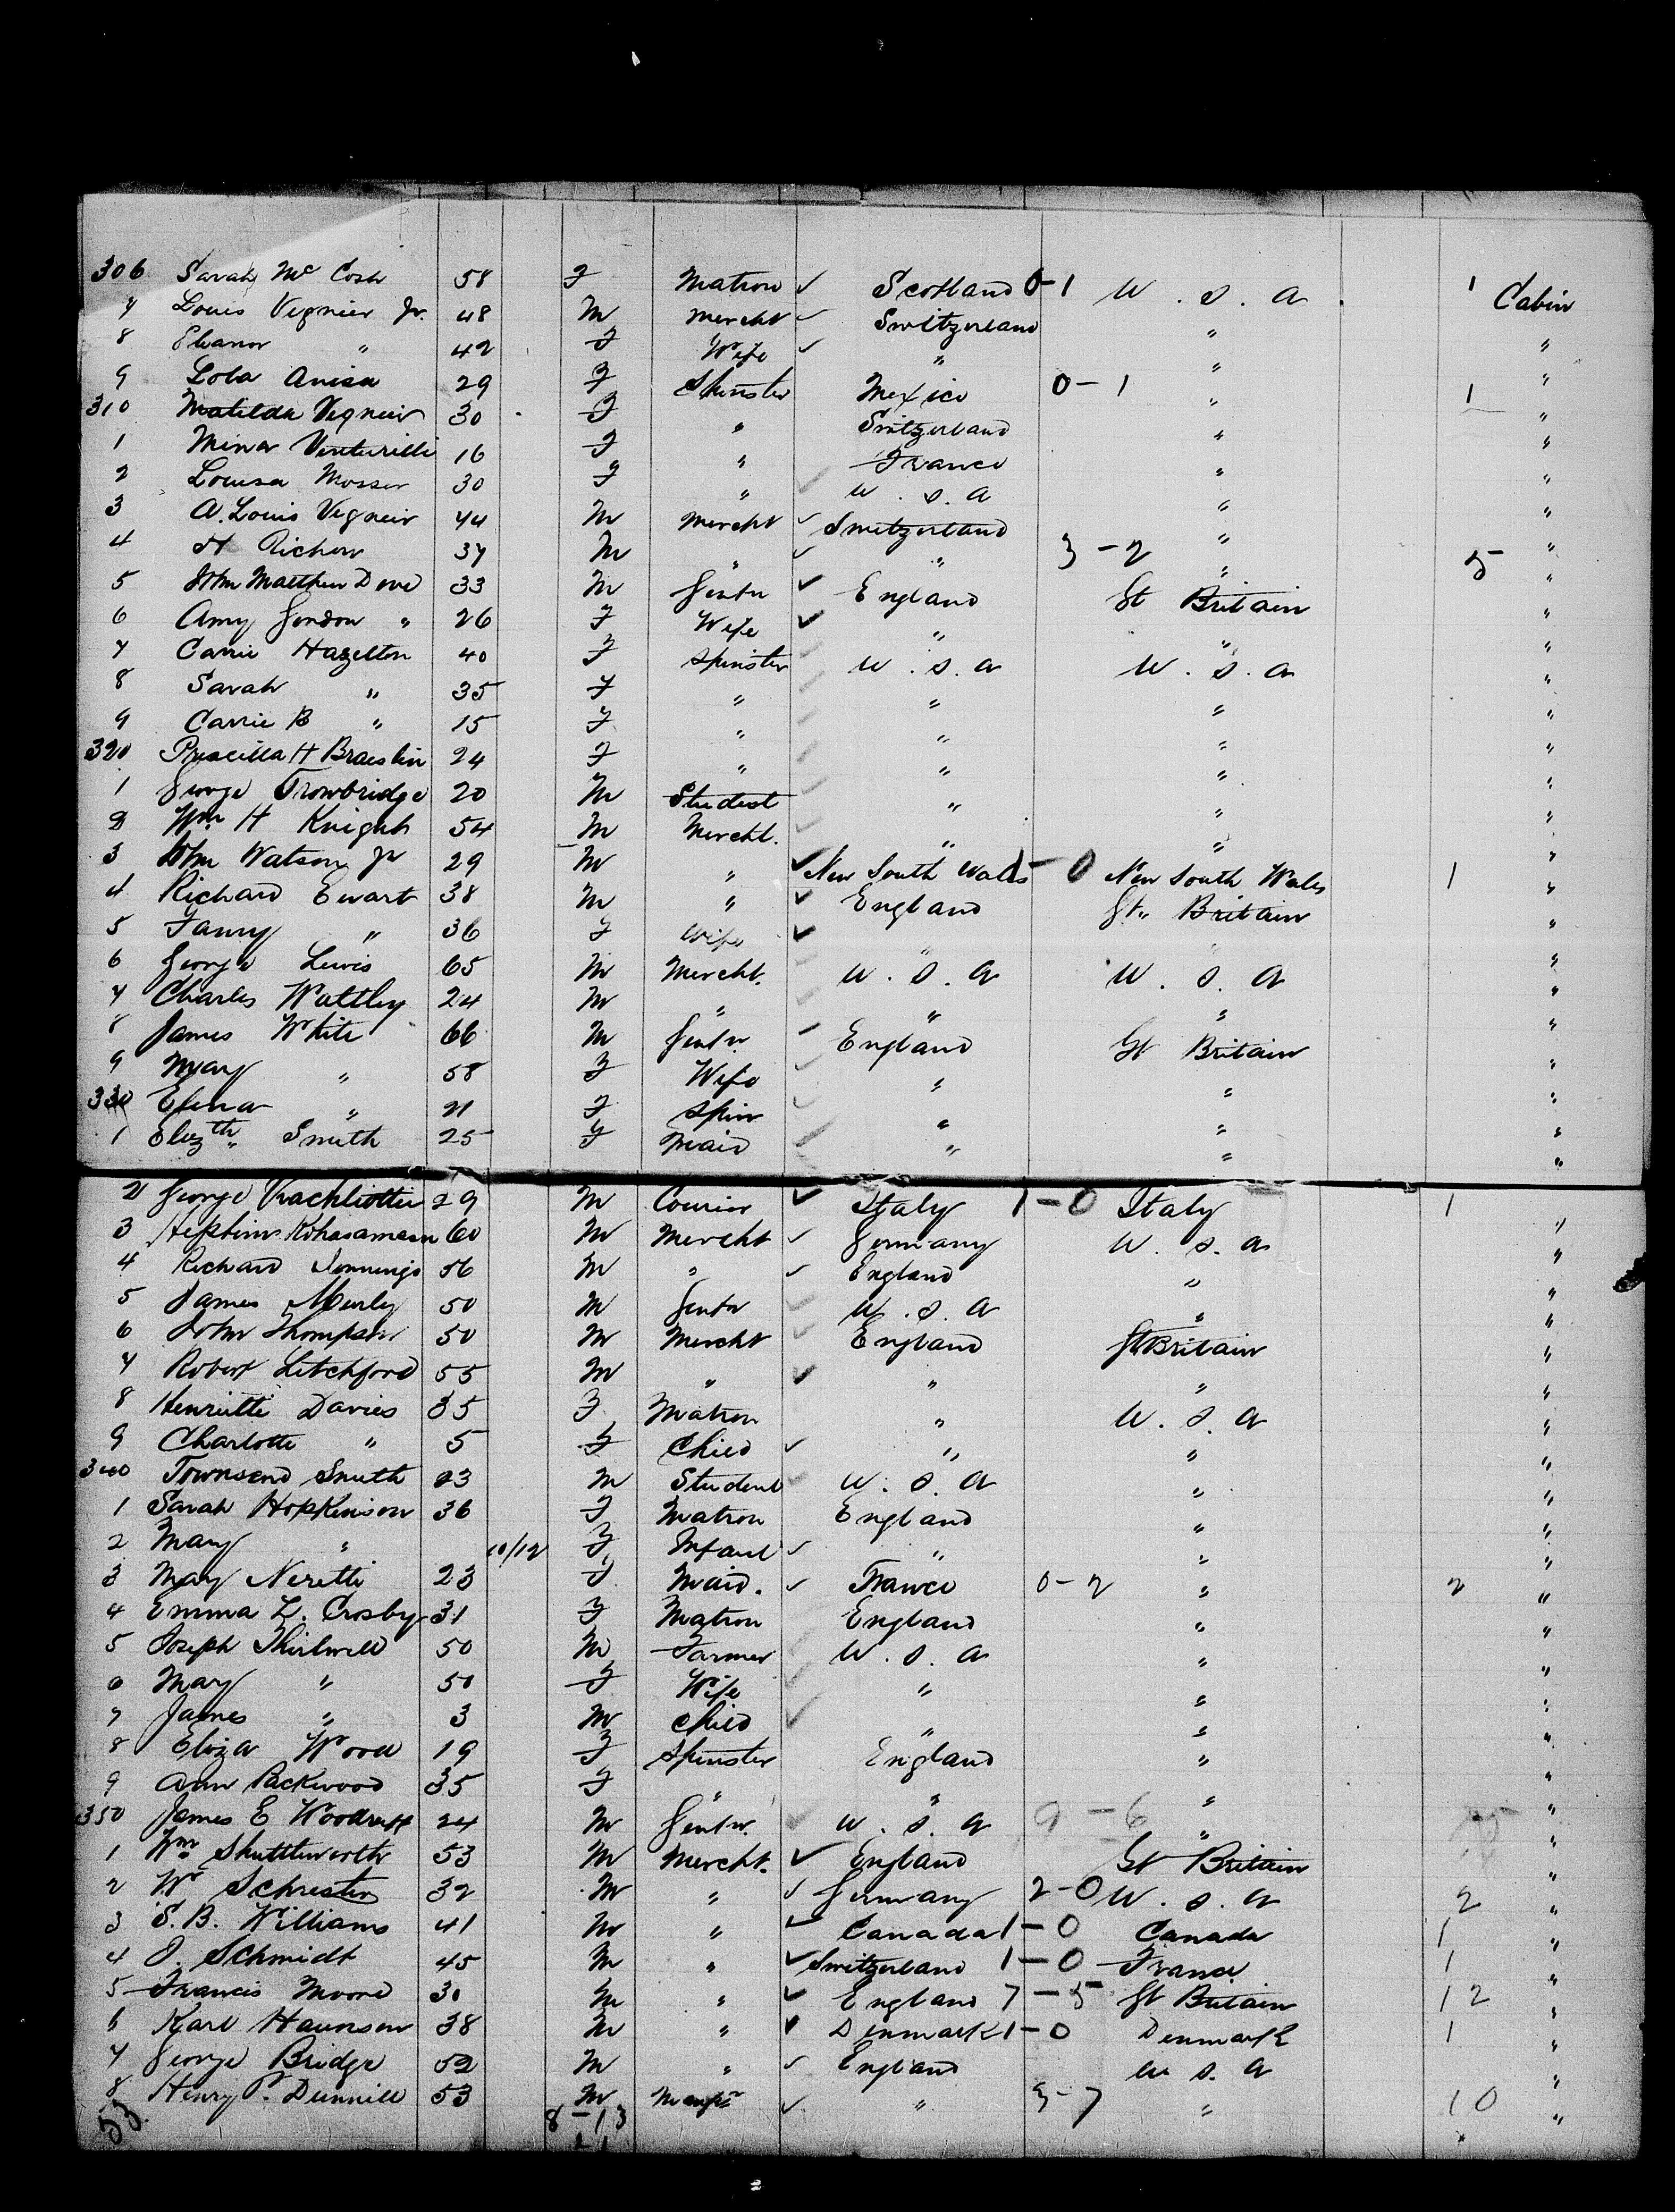 306 Sarah Mc Cosh 58 F Matron ✓ Scotland 0-1 U. S. A. 1 Cabin
7 Louis Vegnier Jr. 48 M Mercht ✓ Switzerland " "
8 Eleanor " 42 F Wife ✓ " " "
9 Lola Anisa 29 F Spinster Mexico 0-1 " 1 "
310 Matilda Vegneir 30 F " Switzerland " "
1 Mina Venturilli 16 F " France " "
2 Louisa Mosser 30 F " ✓ U. S. A " "
3 A. Louis Vegneir 44 M Mercht ✓ Switzerland " "
4 H Richon 37 M " ✓ " 3-2 " 5 "
5 John Matthew Dove 33 M Gentn ✓ England Gt Britain "
6 Amy Gordon " 26 F Wife ✓ " " "
7 Carrie Hazelton 40 F Spinster U. S. A U. S. A "
8 Sarah " 35 F " " " "
9 Carrie B " 15 F " " " "
320 Priscilla H Braeslin 24 F " " " "
1 George Trowbridge 20 M Student " " "
2 Wm H Knight 54 M Mercht. " " "
3 John Watson Jr 29 M " ✓ New South Wales 1-0 New South Wales 1 "
4 Richard Ewart 38 M " ✓ England Gt. Britain "
5 Fanny " 36 F Wife ✓ " " "
6 George Lewis 65 M Mercht. U. S. A U. S. A "
7 Charles Wattley 24 M " " " "
8 James White 66 M Gentn. England Gt Britain "
9 Mary " 58 F Wife " " "
330 " 21 F Spin " " "
1 Elizth Smith 25 F Maid " " "
2 George 29 M Courier ✓ Italy 1-0 Italy 1 "
3 60 M Mercht ✓ Germany U. S. A "
4 Richard Jennings 56 M " ✓ England " "
5 James 50 M Gentn U. S. A " "
6 John Thompson 50 M Mercht England Gt Britain "
7 Robert Letchford 55 M " ✓ " " "
8 Henriette Davies 35 F Matron " U. S. A "
9 Charlotte " 5 F Child ✓ " " "
340 Townsend Smith 23 M Student U. S. A " "
1 Sarah Hopkinson 36 F Matron England " "
2 Mary " 10/12 F Infant ✓ " " "
3 May Neretti 23 F Maid. ✓ France 0-2 " 2 "
4 Emma L. Crosby 31 F Matron England " "
5 Joseph Thirlwell 50 M Farmer U. S. A " "
6 Mary " 50 F Wife " " "
7 James " 3 M Child " " "
8 Eliza Wood 19 F Spinster England " "
9 Ann Packwood 35 F " " " "
350 James E Woodruff 24 M Gentn. U. S. A 9-6 " 15 "
1 Wm Shuttleworth 53 M Mercht. ✓ England Gt Britain "
2 W Schrester 32 M " ✓ Germany 2-0 U. S. A 2 "
3 S. B. Williams 41 M " ✓ Canada 1-0 Canada 1 "
4 J. Schmidt 45 M " ✓ Switzerland 1-0 France 1 "
5 Francis Moore 30 M " ✓ England 7-5 Gt Britain 12 "
6 Karl Haunson 38 M " ✓ Denmark 1-0 Denmark 1 "
7 George Bridge 52 M " ✓ England U S. A "
8 Henry P. Dunnill 53 M ✓ " 3-7 " 10 "
53. 8-13